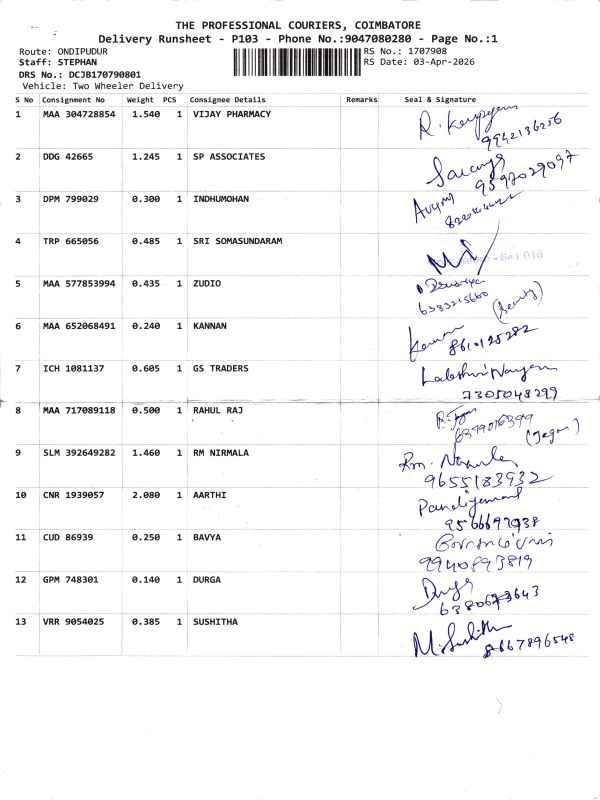 THE PROFESSIONAL COURIERS, COIMBATORE
Delivery Runsheet - P103 - Phone No.:9047080280 - Page No.:1
Route: ONDIPUDUR RS No.: 1707908
Staff: STEPHAN RS Date: 03-Apr-2026
DRS No.: DCJB170790801
Vehicle: Two Wheeler Delivery
S No Consignment No Weight PCS Consignee Details Remarks Seal & Signature
1 MAA 304728854 1.540 1 VIJAY PHARMACY R.
9942136256
2 DDG 42665 1.245 1 SP ASSOCIATES
9597029097
3 DPM 799029 0.300 1 INDHUMOHAN
4 TRP 665056 0.485 1 SRI SOMASUNDARAM
5 MAA 577853994 0.435 1 ZUDIO
6383215660
6 MAA 652068491 0.240 1 KANNAN
8610125282
7 ICH 1081137 0.605 1 GS TRADERS
7305048299
8 MAA 717089118 0.500 1 RAHUL RAJ
(Jegan)
9 SLM 392649282 1.460 1 RM NIRMALA Rm.
9655183932
10 CNR 1939057 2.080 1 AARTHI
11 CUD 86939 0.250 1 BAVYA
9940893819
12 GPM 748301 0.140 1 DURGA Durga
13 VRR 9054025 0.385 1 SUSHITHA M. Sushitha
8667896548